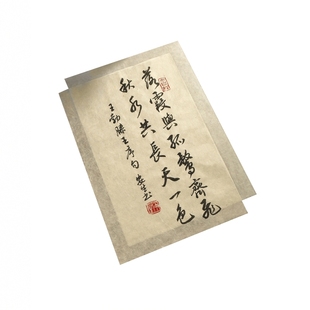 落霞與孤鶩齊飛
秋水共長天一色
王勃滕王序句